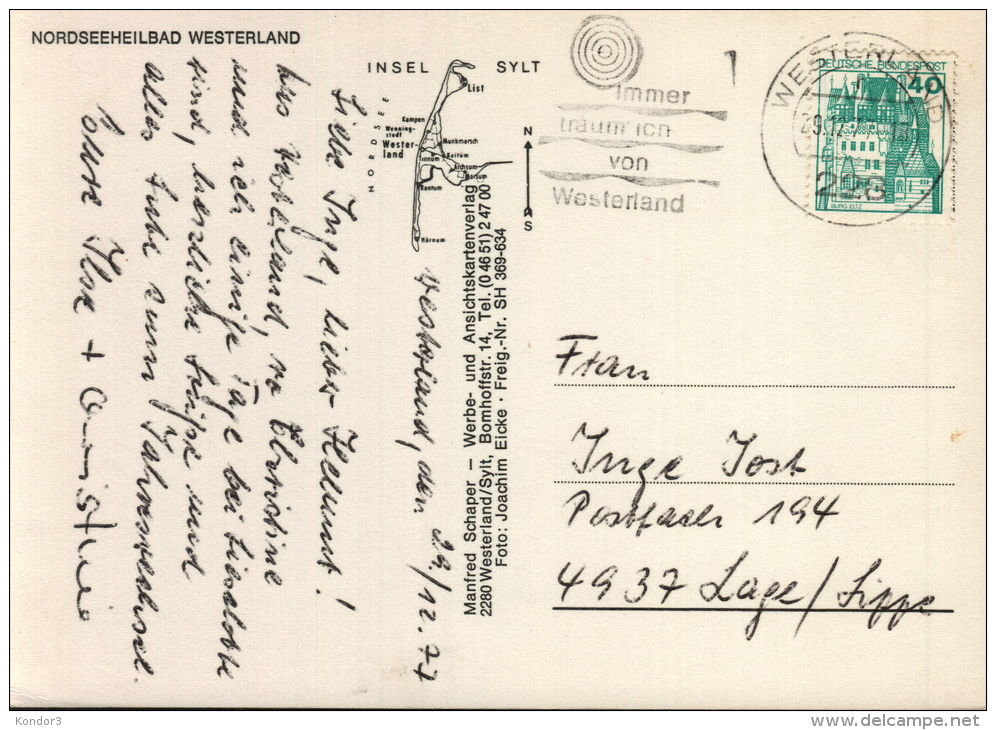 NORDSEEHEILBAD WESTERLAND
INSEL SYLT
NORDSEE
List
Kampen
Wenning-
stedt
Wester-
land
Munkmarsch
Tinnum
Keitum
Archsum
Morsum
Rantum
Hörnum
N
S
Immer
träum'ich
von
Westerland
WESTERLAND
228
DEUTSCHE BUNDESPOST
40
BURG ELTZ
Manfred Schaper — Werbe- und Ansichtskartenverlag
2280 Westerland/Sylt, Bomhoffstr. 14, Tel. (0 46 51) 2 47 00
Foto: Joachim Eicke · Freig.-Nr. SH 369-634
Westerland, den 29/12. 77
Liebe Inge, lieber Hellmut!
Aus Westerland, wo Christine
und ich einige Tage bei Lieselotte
sind, herzliche Grüße und
alles Gute zum Jahreswechsel.
Eure Ilse + Christine
Frau
Inge Jost
Postfach 194
4937 Lage/Lippe
Kondor3
www.delcampe.net